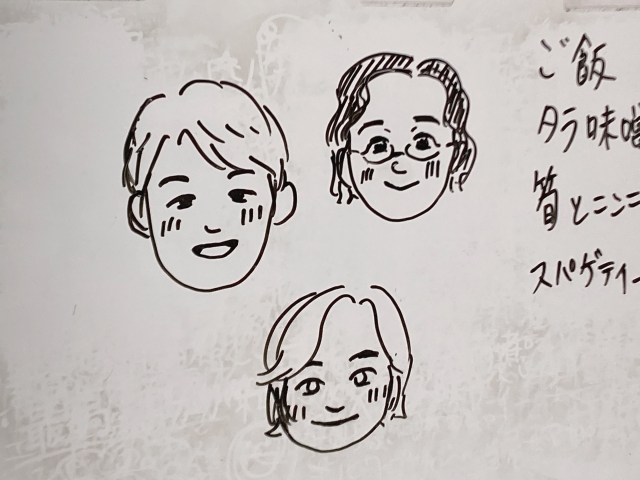 ご飯
タラ味噌
筍とニンニ
スパゲティー